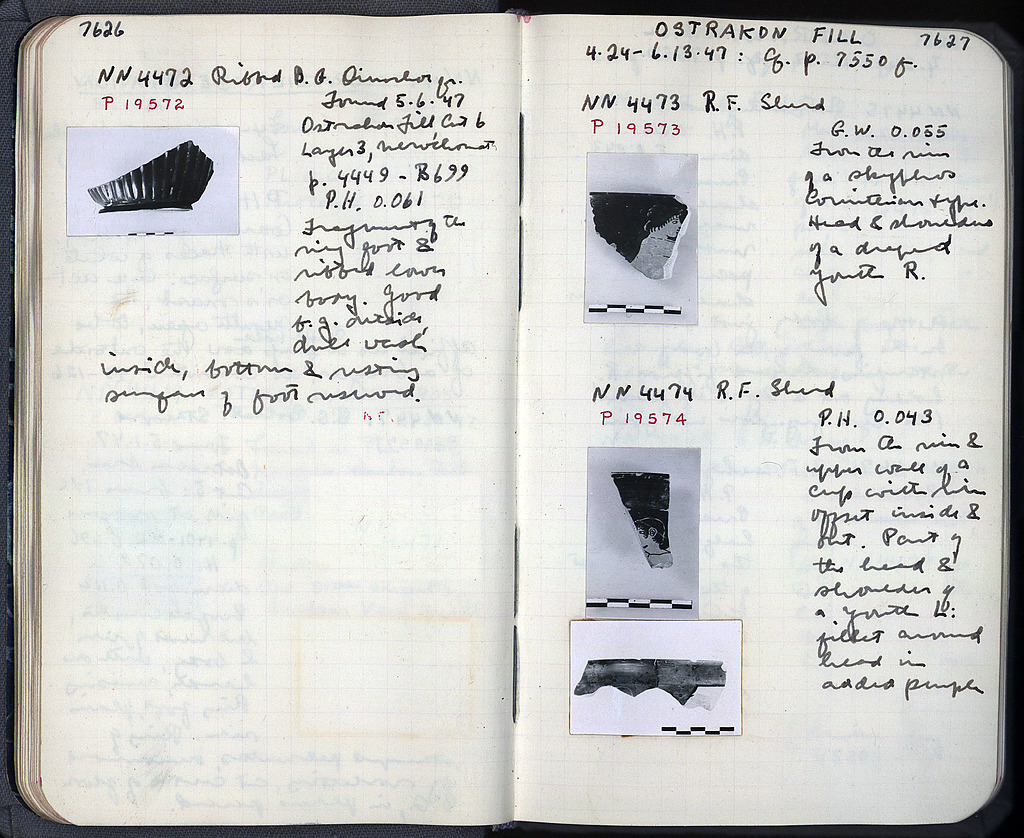 7626
NN 4472 Ribbed B.G.
P 19572
Found 5.6.47
Ostrakon Fill, Cut 6
Layer 3,
p. 4449 - B699
P.H. 0.061
Fragment of the
ring foot &
ribbed lower
body. Good
b.g. outside,
dull wash
inside, bottom & resting
surface of foot reserved.
OSTRAKON FILL
7627
4.24-6.13.47: Cf. p. 7550 f.
NN 4473 R.F. Sherd
P 19573
G.W. 0.055
From the rim
of a skyphos
Corinthian type.
Head & shoulders
of a draped
youth R.
NN 4474 R.F. Sherd
P 19574
P.H. 0.043
From the rim &
upper wall of a
cup with rim
offset inside &
out. Part of
the head &
shoulders of
a youth L:
fillet around
head in
added purple